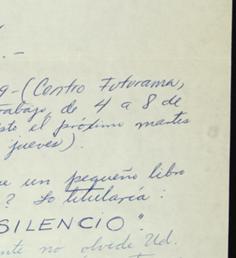 9-(Centro Futurama,
trabajo, de 4 a 8 de
este el próximo martes
jueves).
un pequeño libro
? Lo titularía:
SILENCIO"
no olvide Ud.